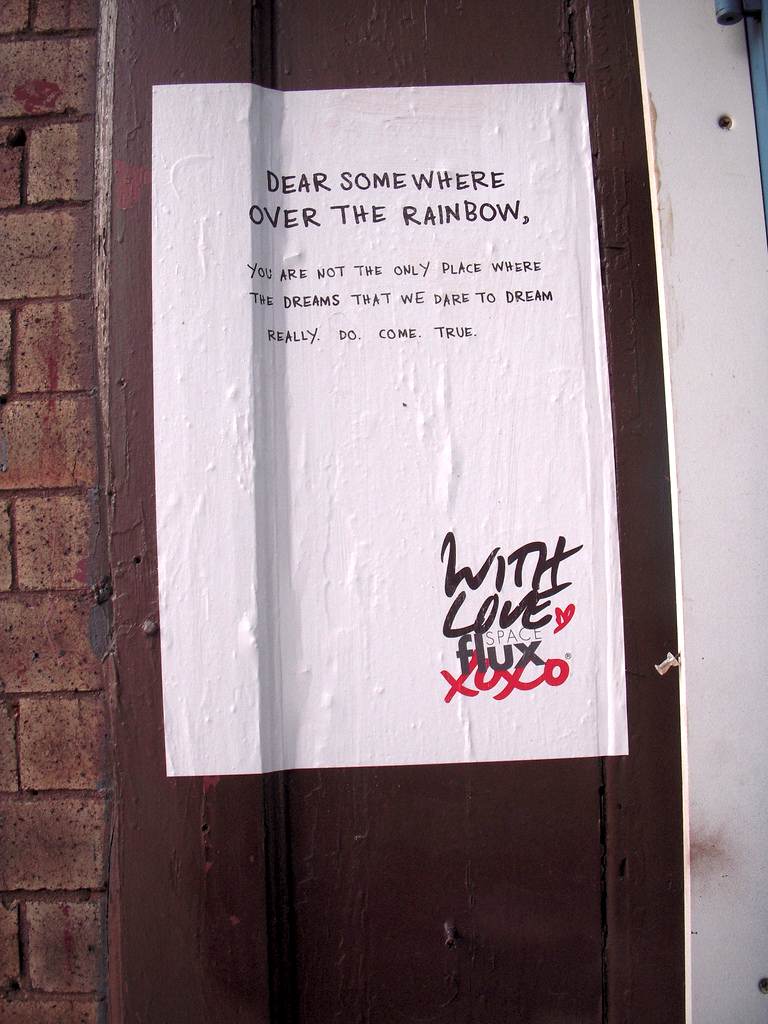 DEAR SOMEWHERE
OVER THE RAINBOW,
YOU ARE NOT THE ONLY PLACE WHERE
THE DREAMS THAT WE DARE TO DREAM
REALLY. DO. COME. TRUE.
WITH
LOVE
SPACE
flux®
XOXO